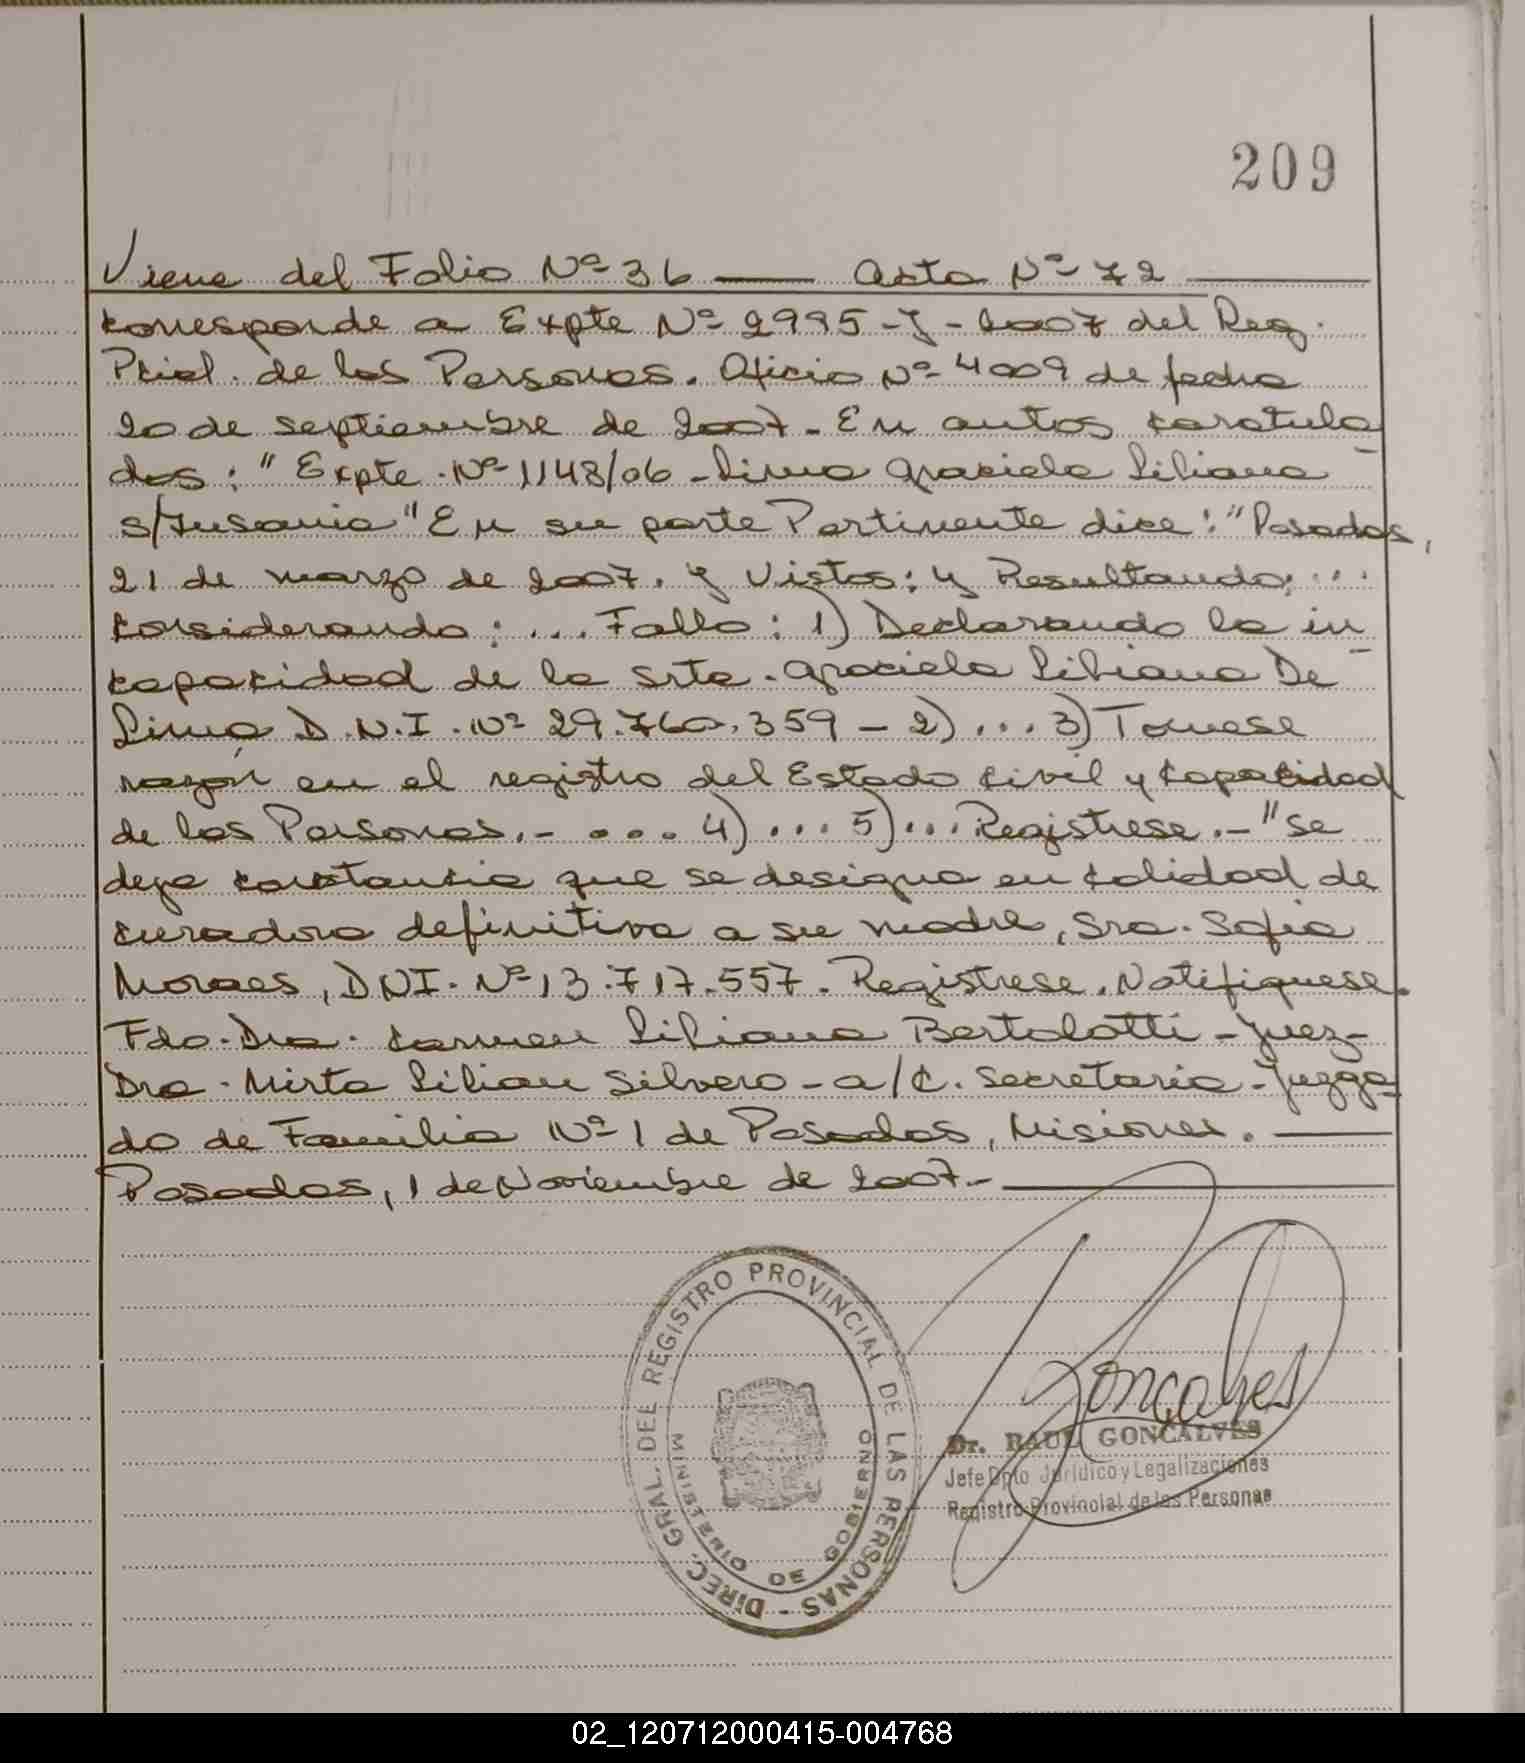 209
Viene del Folio Nº 36 — Acta Nº 72 —
corresponde a Expte Nº 2995-J-2007 del Reg.
Pcial. de las Personas. Oficio Nº 4009 de fecha
20 de septiembre de 2007.- En autos caratula
dos: "Expte. Nº 1148/06 - Lima Graciela Liliana
s/Insania" En su parte Pertinente dice: "Posadas,
21 de marzo de 2007. y Vistos: y Resultando: ...
Considerando: ... Fallo: 1) Declarando la in
capacidad de la srta. Graciela Liliana De
Lima D.N.I. Nº 29.760.359 - 2) ... 3) Tomese
razón en el registro del Estado civil y capacidad
de las Personas.- .... 4) ... 5) ... Registrese.-" se
deja constancia que se designa en calidad de
curadora definitiva a su madre, Sra. Sofia
Moraes, DNI. Nº 13.717.557. Registrese. Notifiquese.
Fdo. Dra. Carmen Liliana Bertolotti - Juez-
Dra. Mirta Lilian Silvero - a/c. secretaria - Juzga
do de Familia Nº 1 de Posadas, Misiones. —
Posadas, 1 de Noviembre de 2007.- —
DIREC. GRAL. DEL REGISTRO PROVINCIAL DE LAS PERSONAS -
MINISTERIO DE GOBIERNO
Gonçalves
Dr. RAUL GONCALVES
Jefe Dpto Jurídico y Legalizaciones
Registro Provincial de las Personas
02_120712000415-004768